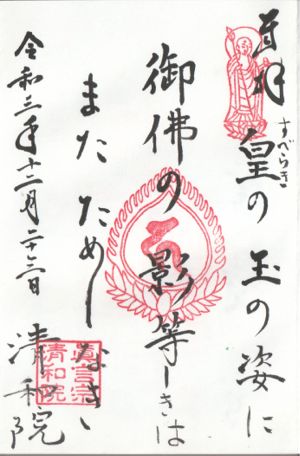 奉拝
皇の玉の姿に
すべらき
御佛の影等しきは
またためしなき
令和三年十二月二十三日
清和院
真言宗
清和院